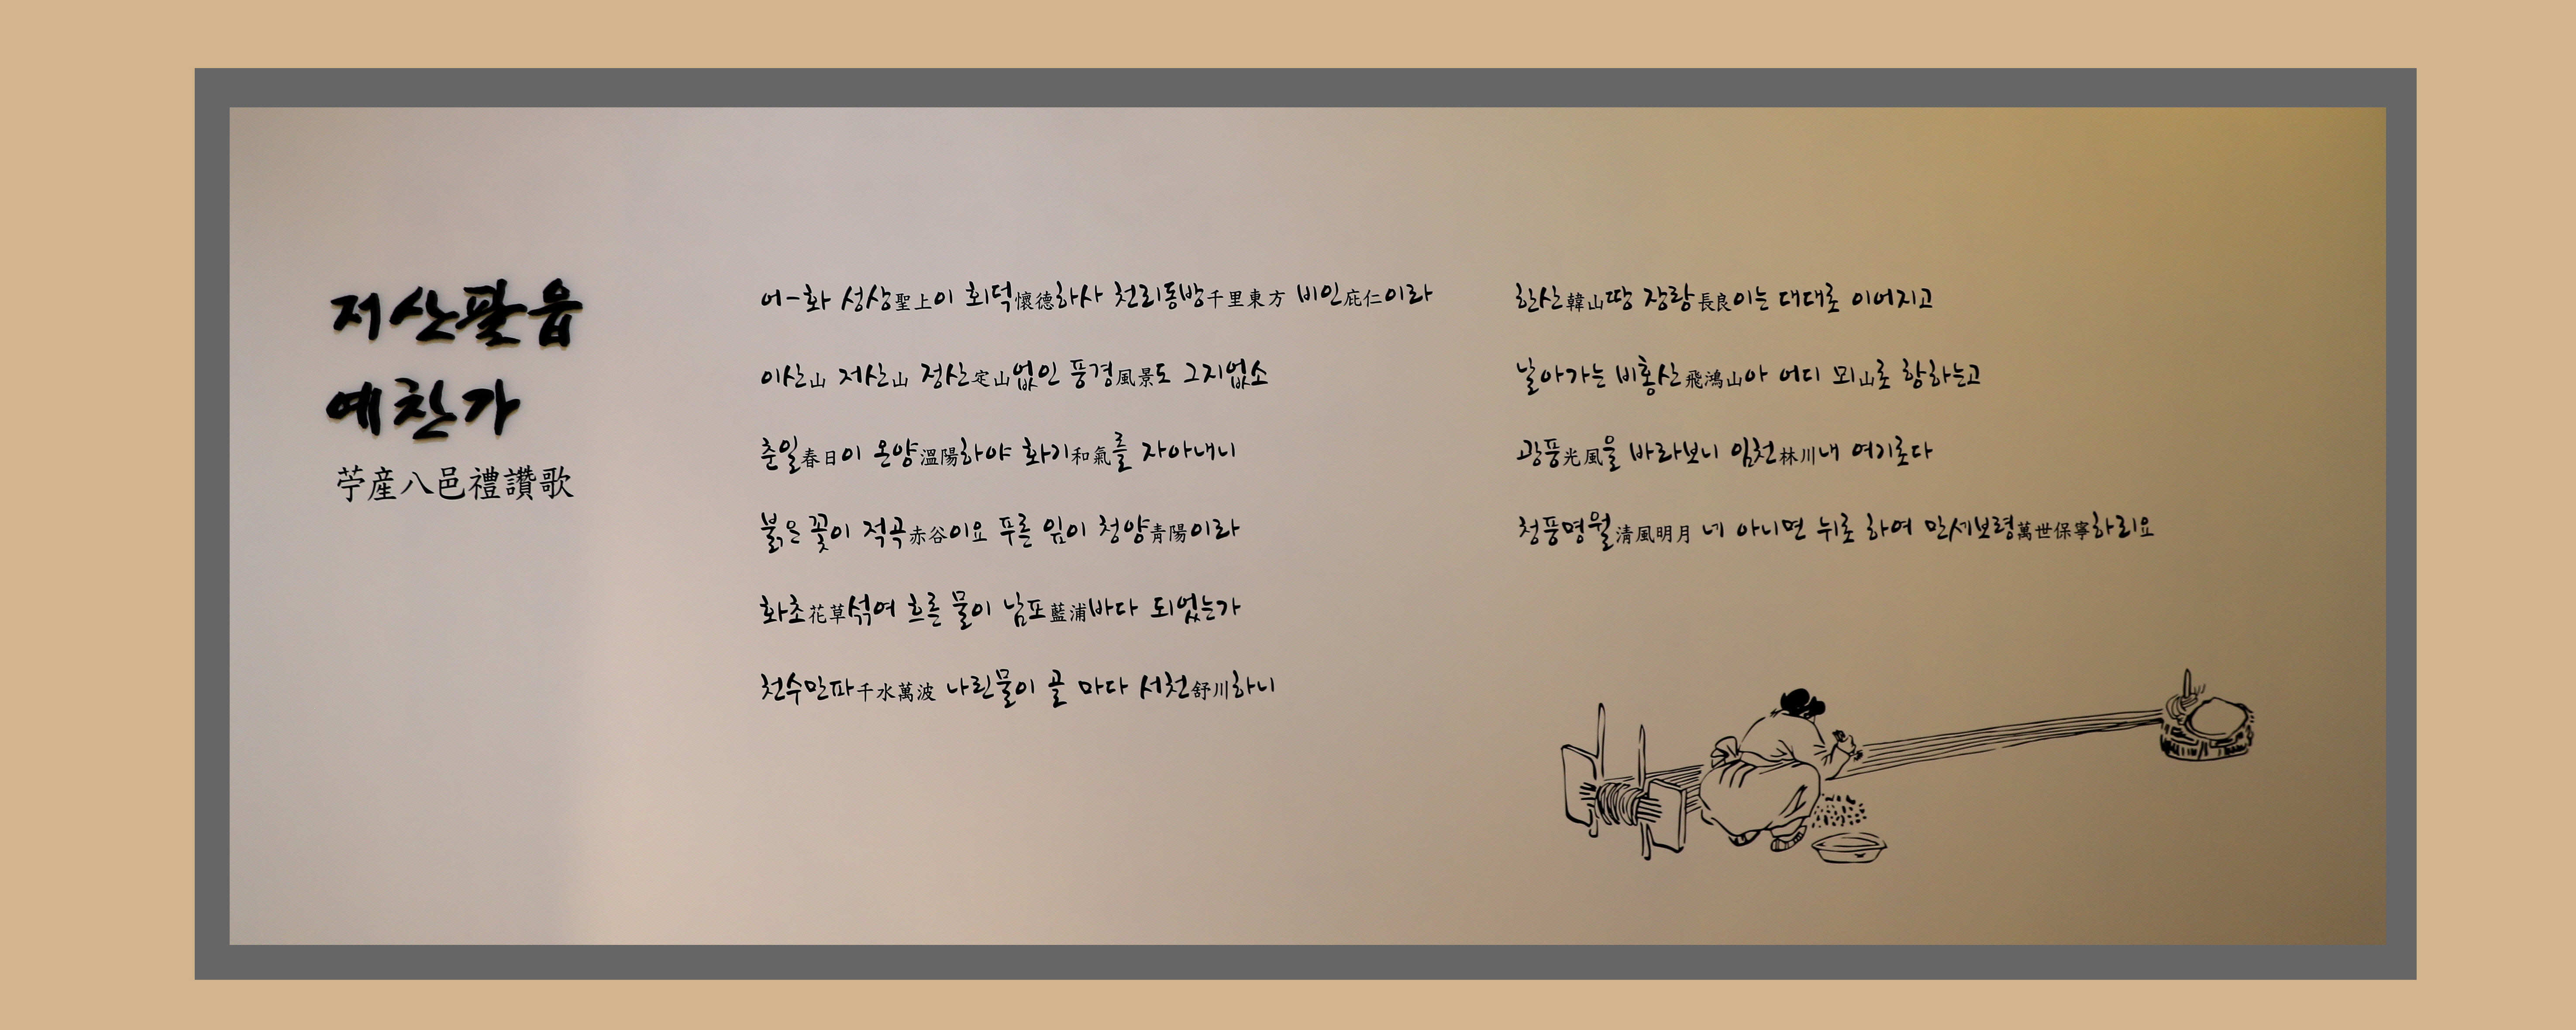 저산팔읍
예찬가
苧産八邑禮讚歌
어-화 성상聖上이 회덕懷德하사 천리동방千里東方 비인庇仁이라
이산山 저산山 정산定山없인 풍경風景도 그지없소
춘일春日이 온양溫陽하야 화기和氣를 자아내니
붉은 꽃이 적곡赤谷이요 푸른 잎이 청양靑陽이라
화초花草섞여 흐른 물이 남포藍浦바다 되었는가
천수만파千水萬波 나린물이 골 마다 서천舒川하니
한산韓山땅 장랑長良이는 대대로 이어지고
날아가는 비홍산飛鴻山아 어디 뫼山로 향하는고
광풍光風을 바라보니 임천林川내 여기로다
청풍명월淸風明月 네 아니면 뉘로 하여 만세보령萬世保寧하리요